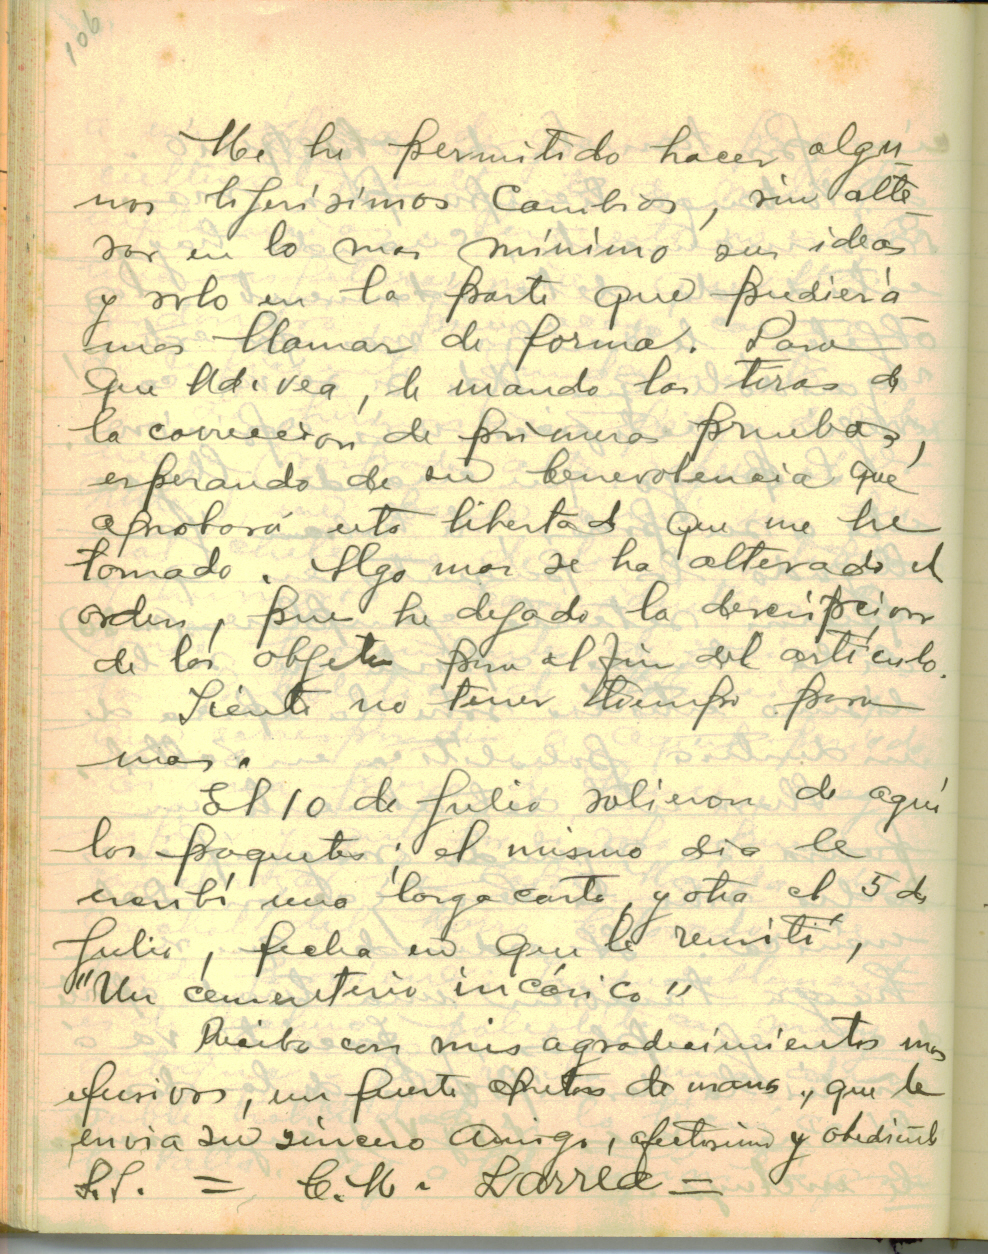 106
Me he permitido hacer algu-
nos ligerisimos cambios, sin alte-
rar en lo mas mínimo sus ideas
y solo en la parte que pudiera-
mos llamar de forma. Para
que Ud. vea, le mando las tiras de
la correccion de primeras pruebas,
esperando de su benevolencia que
aprobará esta libertad que me he
tomado. Algo mas se ha alterado el
orden, pues he dejado la descripcion
de los objetos para el fin del artículo.
Siento no tener tiempo para
mas.
El 10 de Julio salieron de aquí
los paquetes; el mismo dia le
escribí una larga carta, y otra el 5 de
Julio, fecha en que le remití,
"Un cementerio incásico"
Reciba con mis agradecimientos mas
efusivos, un fuerte apreton de manos, que le
envia su sincero amigo, afectisimo y obediente
S.S. = C. M. Larrea =